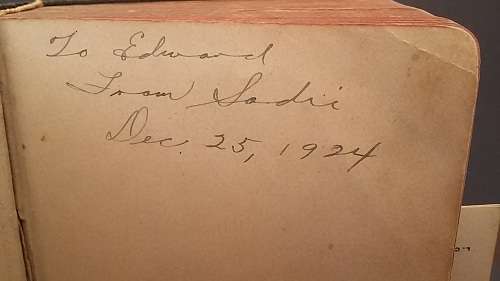 To Edward
From Sadie
Dec. 25, 1924